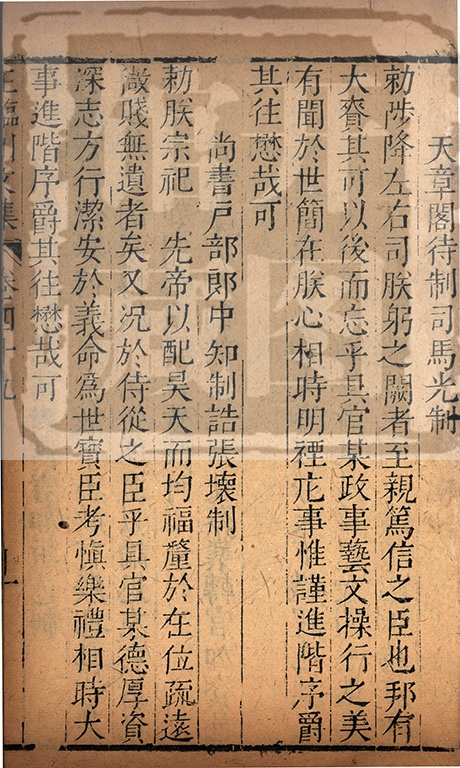 天章閣待制司馬光制
勑陟降左右司朕躬之闕者至親篤信之臣也邦有
大賚其可以後而忘乎具官某政事藝文操行之美
有聞於世簡在朕心相時明禋庀事惟謹進階序爵
其往懋哉可
尚書戸部郎中知制誥張壞制
勑朕宗祀 先帝以配昊天而均福釐於在位疏遠
微賤無遺者矣又况於侍從之臣乎具官某德厚資
深志方行潔安於義命爲世寳臣考慎樂禮相時大
事進階序爵其往懋哉可
王臨川文集 卷四十九